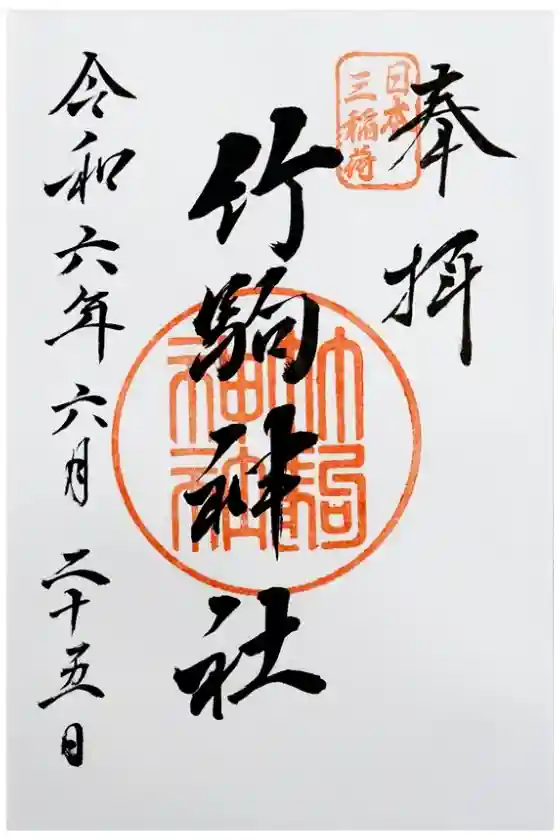 奉拝
日本
三稲荷
竹駒神社
竹駒
神社
令和六年六月二十五日